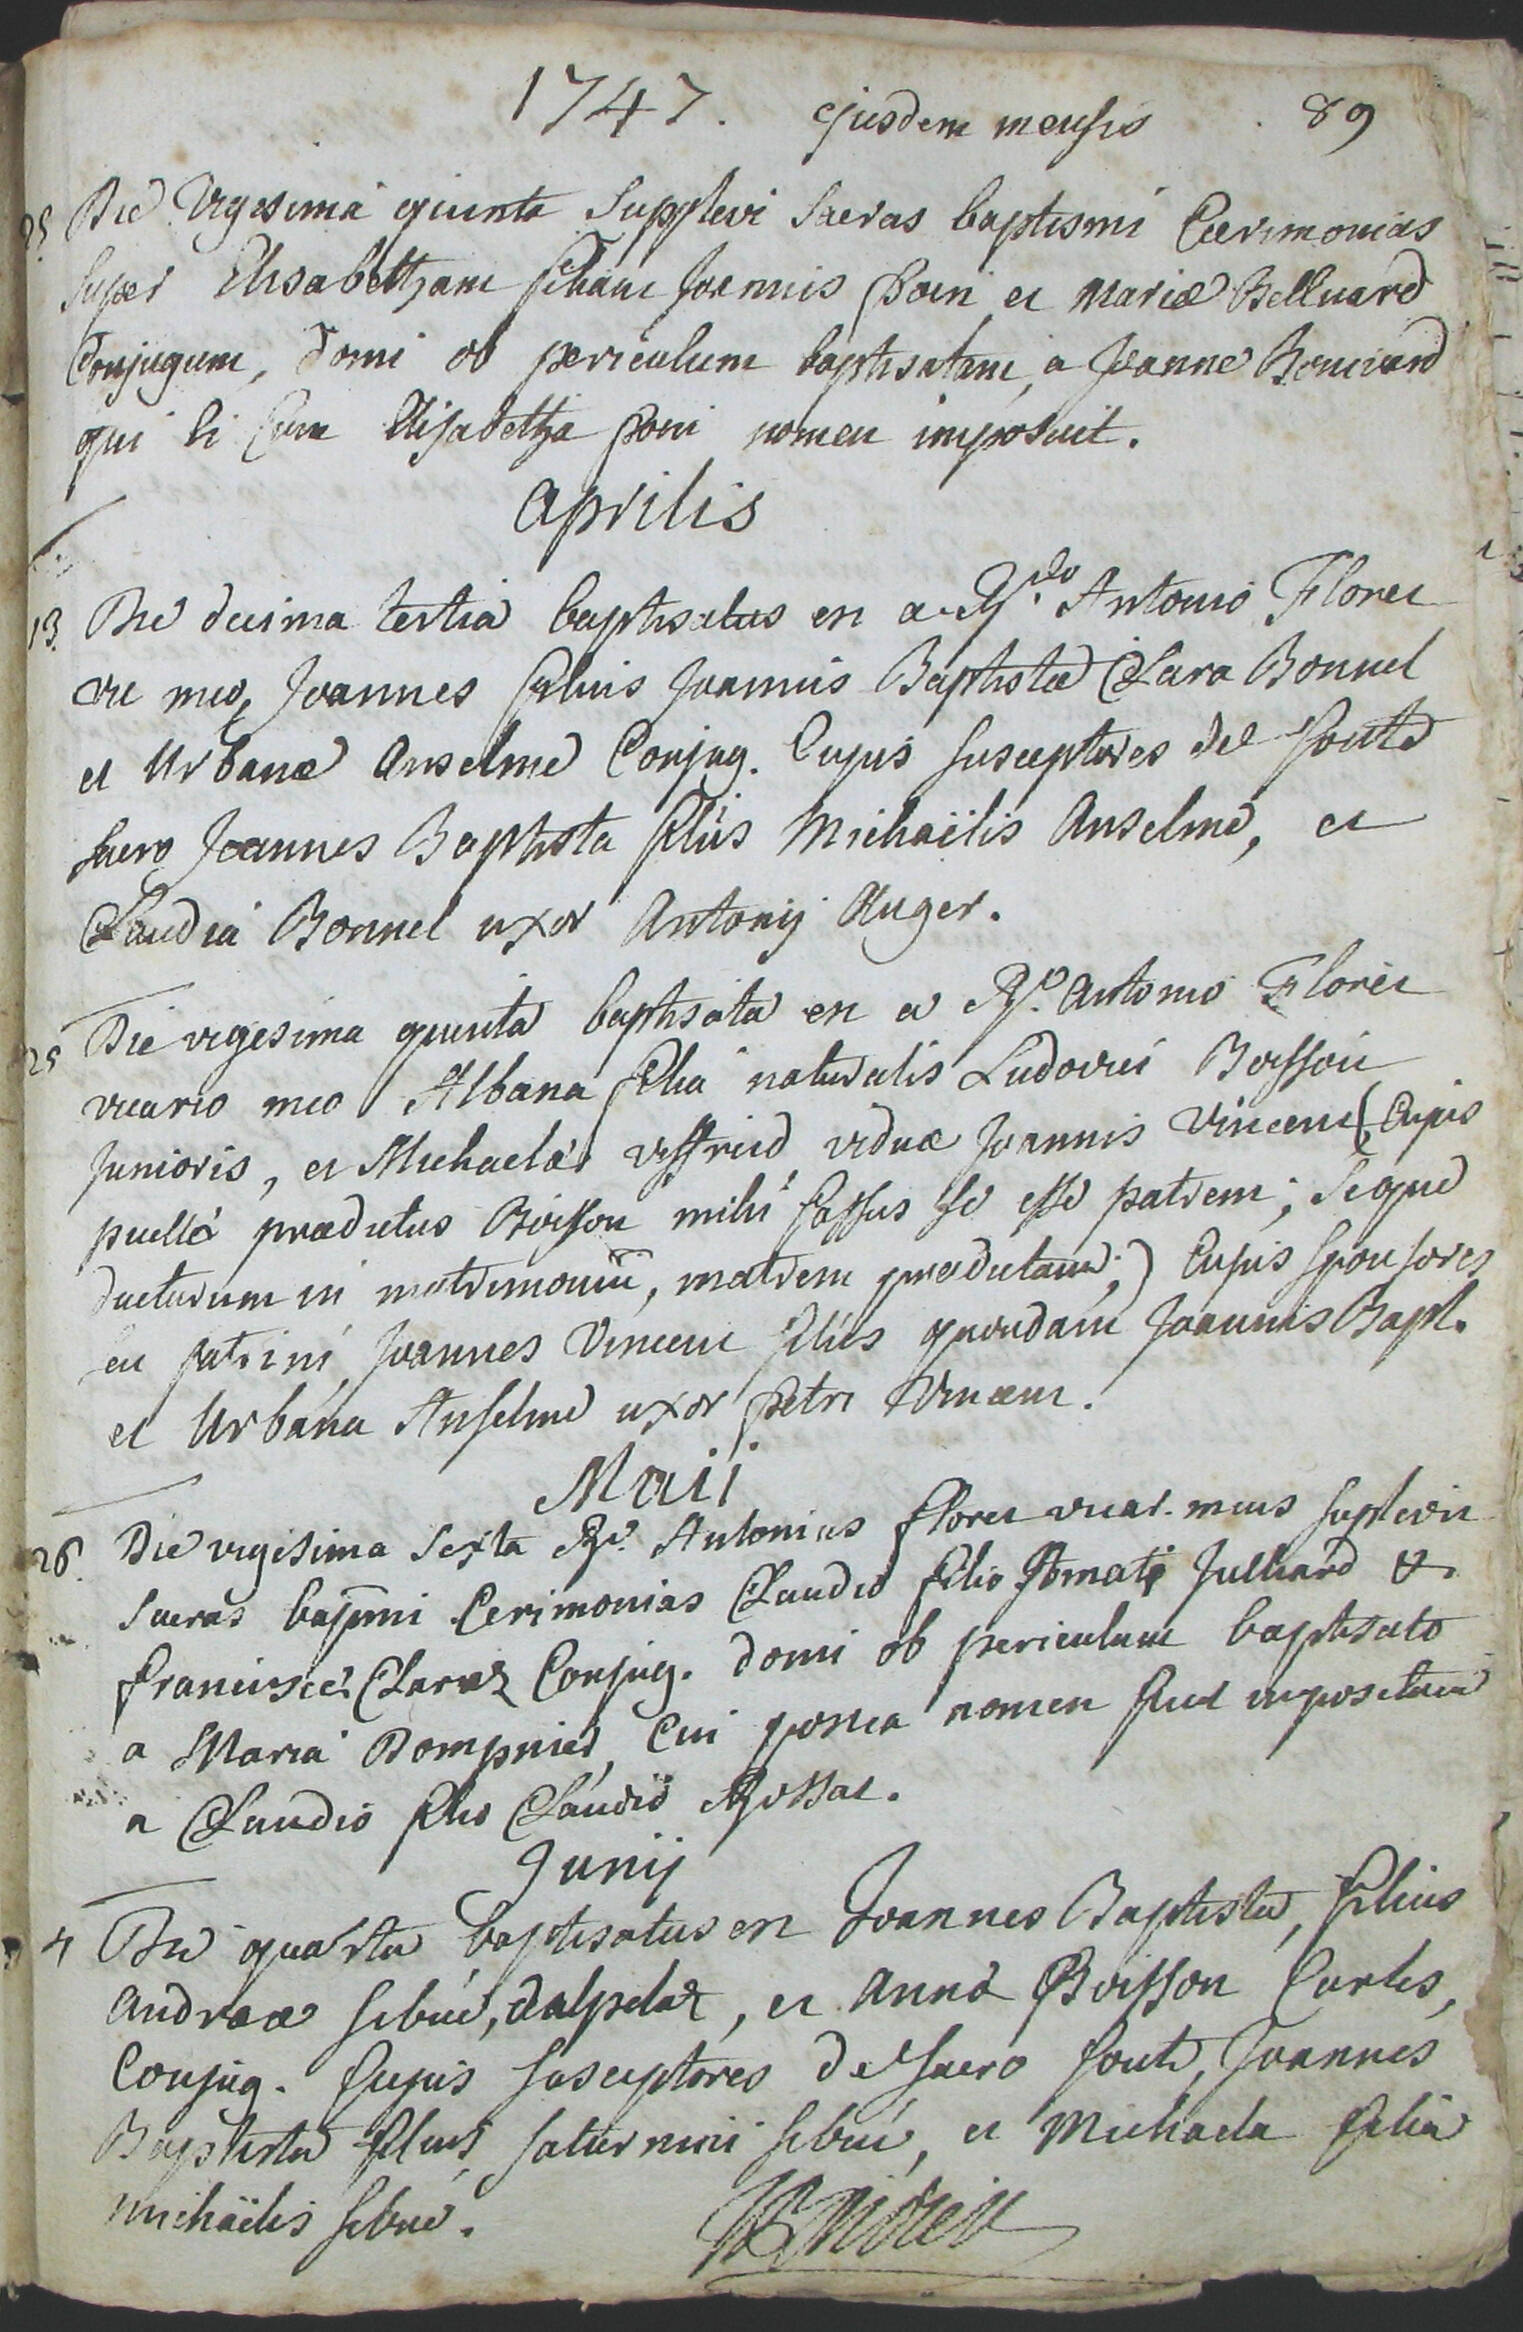 1747. ejusdem mensis 89
25 Die Vigesima quinta Supplevi Sacras baptismi Caerimonias
Super Elisabettham filiam Joannis Poin et Mariae Belluard
Conjugum, domi ob periculum baptisatam, a Joanne
qui ei cum Elisabettha Poin nomen imposuit.
Aprilis
13. Die decima tertia baptisatus est a Rdo Antonio Floret
vic meo, Joannes filius Joannis Baptistae Clara Bonnel
et Urbanae Anselme Conjug. Cujus susceptores de fonte
sacro Joannes Baptista filius Michaëlis Anselme, et
Claudia Bonnel uxor Antonij Auger.
25 Die vigesima quinta baptisata est a Rdo Antonio Floret
vicario meo Albana filia naturalis Ludovici Boisson
junioris, et Michaelae viduae Joannis Vincent (Cujus
puellae praedictus Boisson mihi fassus se esse patrem; seque
ducturum in matrimoniũ, matrem praedictam;) Cujus sponsores
seu patrini, Joannes Vincent filius quondam Joannis Bapt.
et Urbana Anselme uxor Petri Vincent.
Maii
26. Die vigesima sexta Rd. Antonius Floret vicar. meus suplevit
sacras bapmi Cerimonias Claudio filio Amati Julliard &
Franciscae Claraz Conjug. domi ob periculum baptisato
a Maria Dompnier, Cui postea nomen fuit impositum
a Claudio filio Claudii Rossat.
Junij
4 Die quarta baptisatus est Joannes Baptista, filius
Andreae Sibué, dalpelaz, et Annae Boisson Curtes,
Conjug. Cujus susceptores de sacro fonte, Joannes
Baptista filius Saturnini Sibué, et Michaela filia
Michaëlis Sibué.